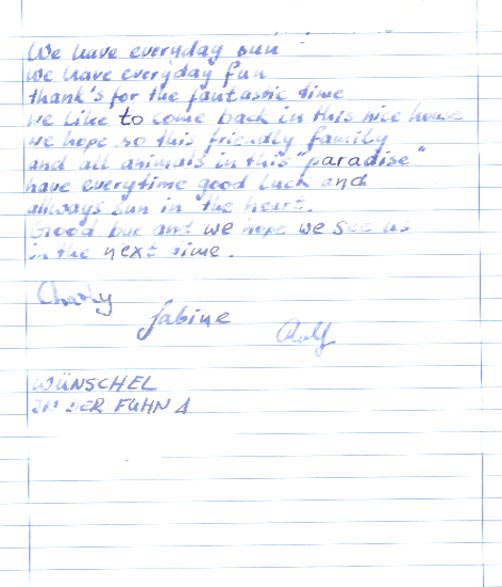 We have everyday sun
we have everyday fun
thank's for the fantastic time
we like to come back in this nice house
we hope so this friendly family
and all animals in this "paradise"
have everytime good luck and
allways sun in the heart.
Good bye and we hope we see us
in the next time.
Charly
Sabine
Rolf
WÜNSCHEL
IN DER FUHN 1